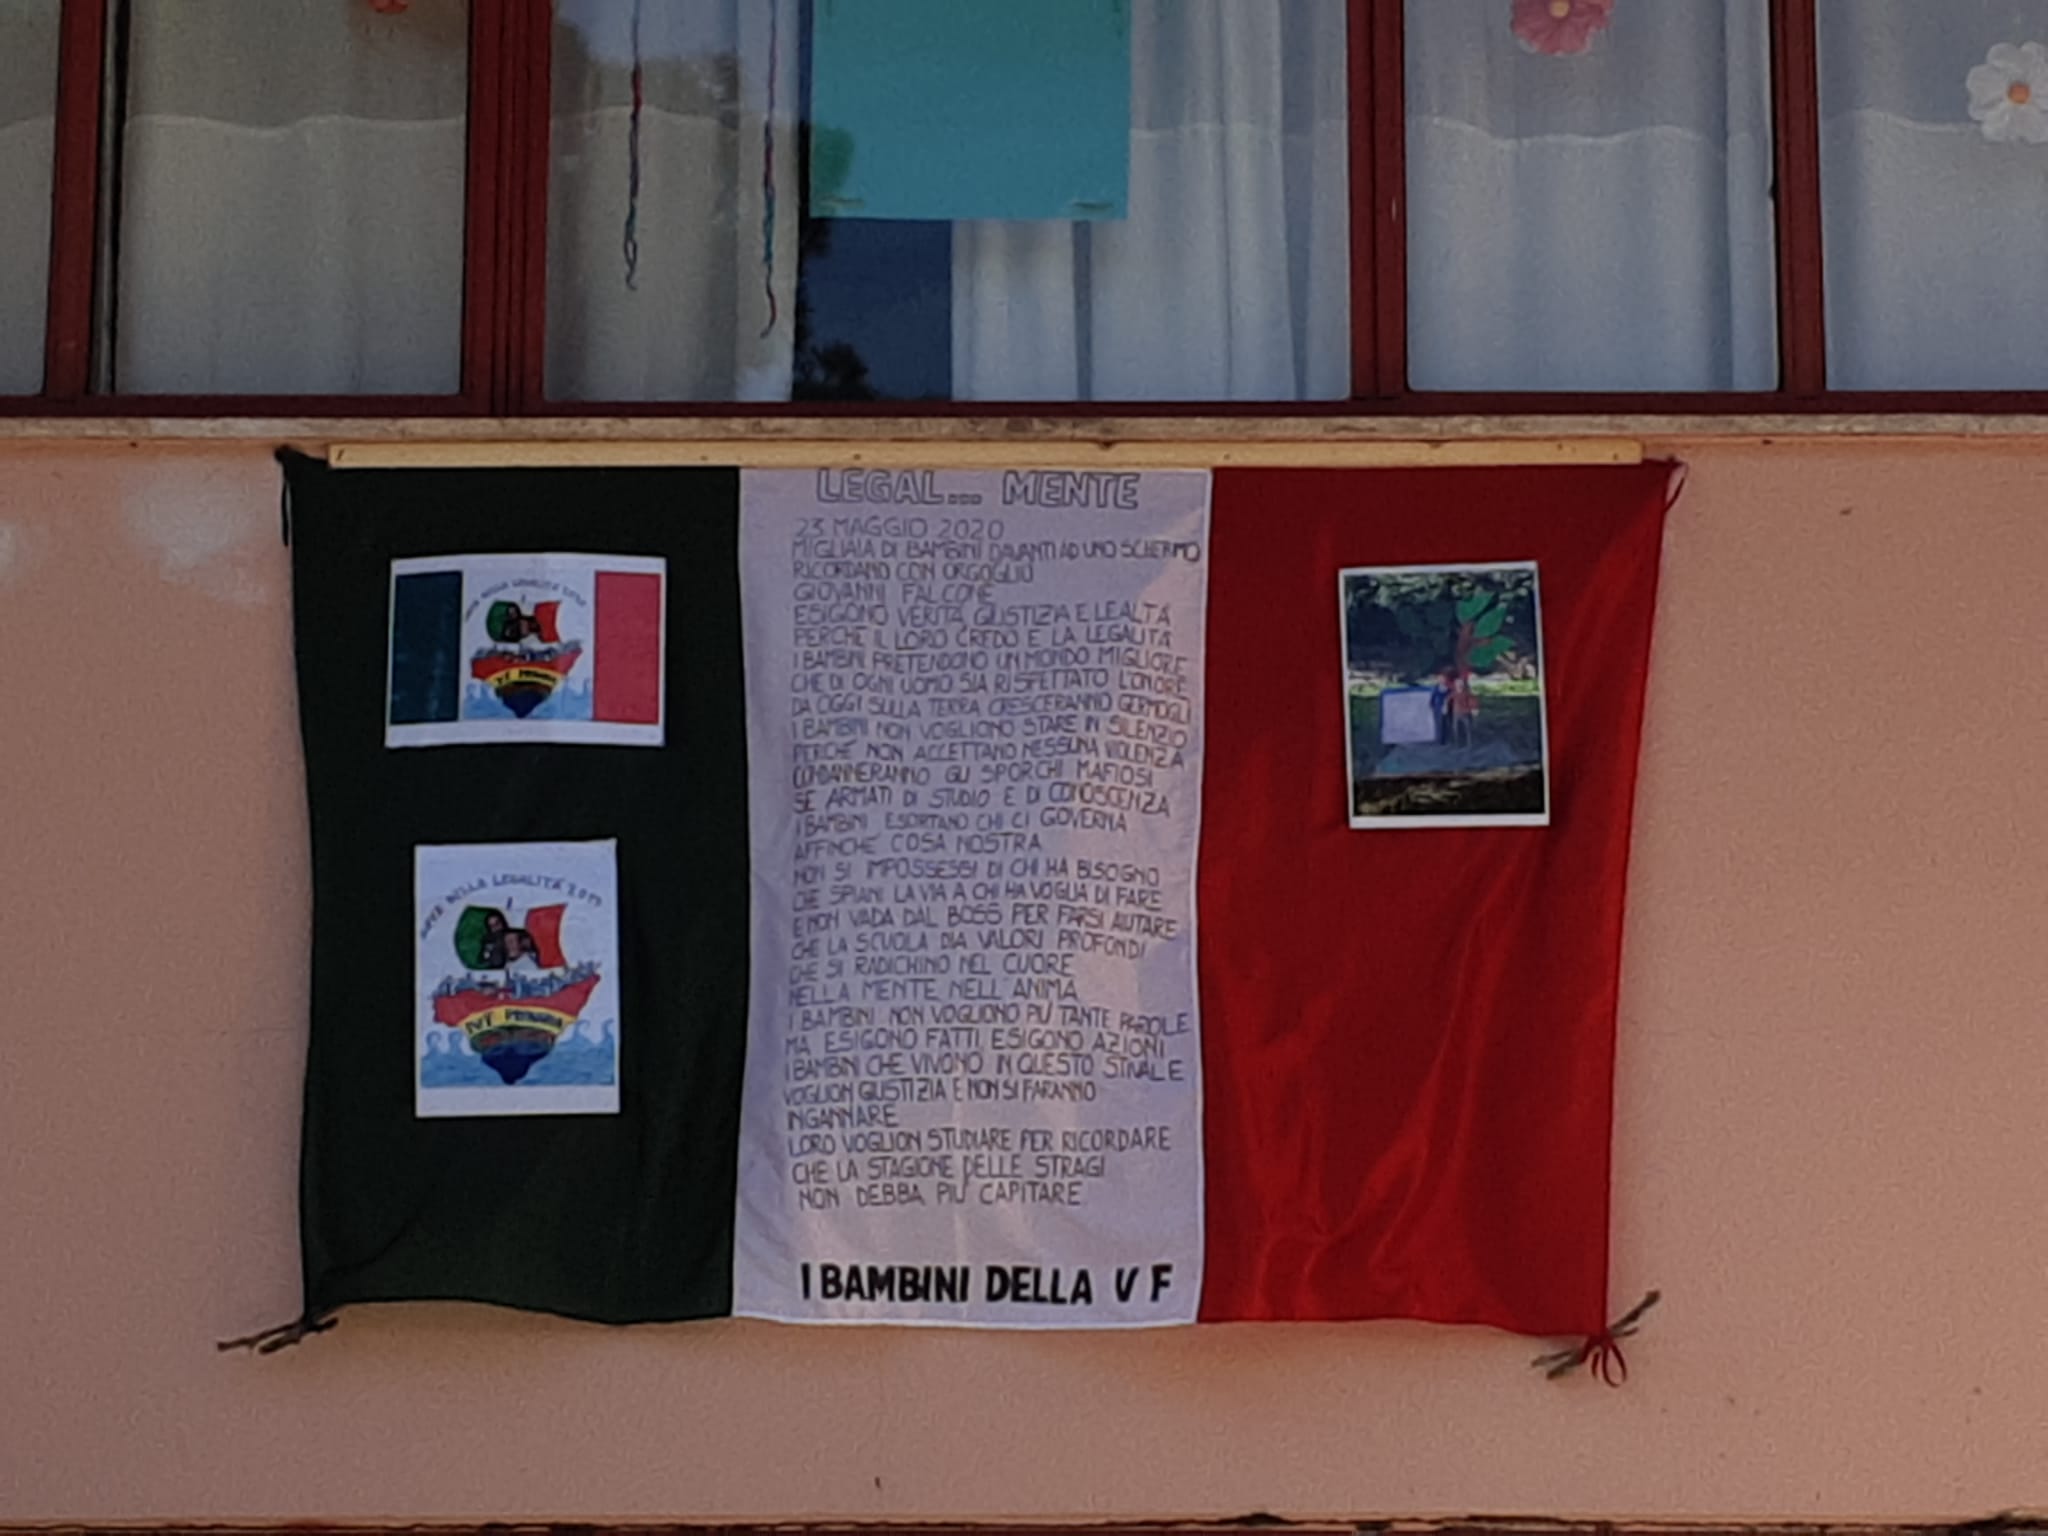 LEGAL... MENTE
23 MAGGIO 2020
MIGLIAIA DI BAMBINI DAVANTI AD UNO SCHERMO
RICORDANO CON ORGOGLIO
GIOVANNI FALCONE
ESIGONO VERITÀ, GIUSTIZIA E LEALTÀ
PERCHÈ IL LORO CREDO È LA LEGALITÀ
I BAMBINI PRETENDONO UN MONDO MIGLIORE
CHE DI OGNI UOMO SIA RISPETTATO L'ONORE
DA OGGI SULLA TERRA CRESCERANNO GERMOGLI
I BAMBINI NON VOGLIONO STARE IN SILENZIO
PERCHÈ NON ACCETTANO NESSUNA VIOLENZA
CONDANNERANNO GLI SPORCHI MAFIOSI
SE ARMATI DI STUDIO E DI CONOSCENZA
I BAMBINI ESORTANO CHI CI GOVERNA
AFFINCHÈ COSA NOSTRA
NON SI IMPOSSESSI DI CHI HA BISOGNO
CHE SPIANI LA VIA A CHI HA VOGLIA DI FARE
E NON VADA DAL BOSS PER FARSI AIUTARE
CHE LA SCUOLA DIA VALORI PROFONDI
CHE SI RADICHINO NEL CUORE
NELLA MENTE NELL'ANIMA
I BAMBINI NON VOGLIONO PIÙ TANTE PAROLE
MA ESIGONO FATTI, ESIGONO AZIONI
I BAMBINI CHE VIVONO IN QUESTO STIVALE
VOGLION GIUSTIZIA E NON SI FARANNO
INGANNARE
LORO VOGLION STUDIARE PER RICORDARE
CHE LA STAGIONE DELLE STRAGI
NON DEBBA PIÙ CAPITARE
I BAMBINI DELLA V F
NAVE DELLA LEGALITÀ 2019